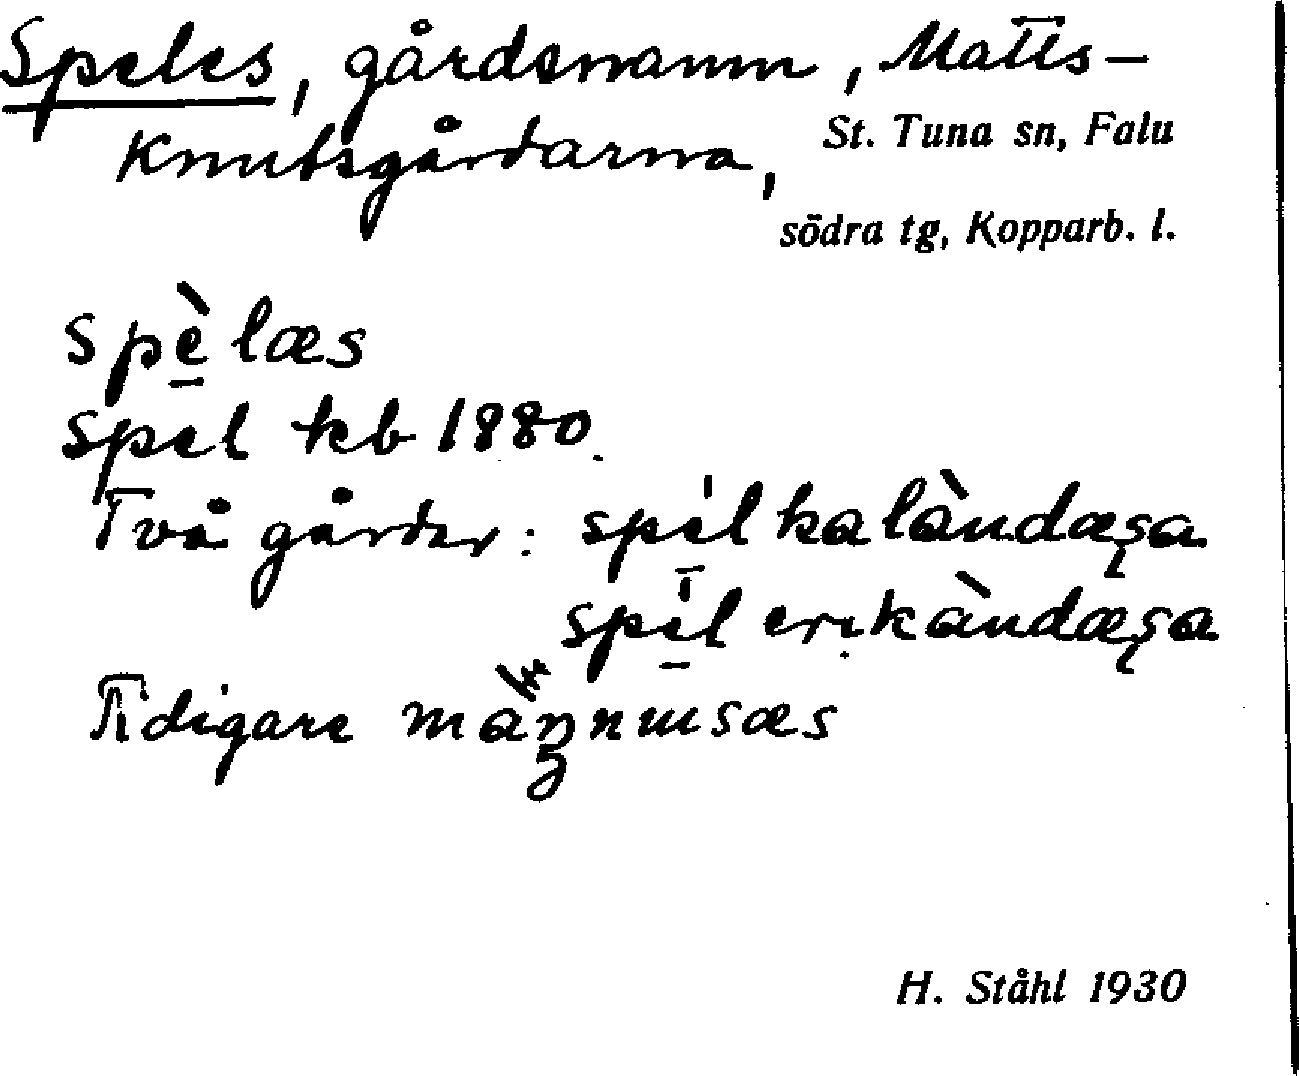 Speles, gårdsnamn, Matts-
Knutsgårdarna,
St. Tuna sn, Falu
södra tg, Kopparb. l.
spè̱læs
spel kb 1880.
Två gårdar: spé̱l kalàndæʂa
spé̱l erikàndæʂa
Tidigare
H. Ståhl 1930